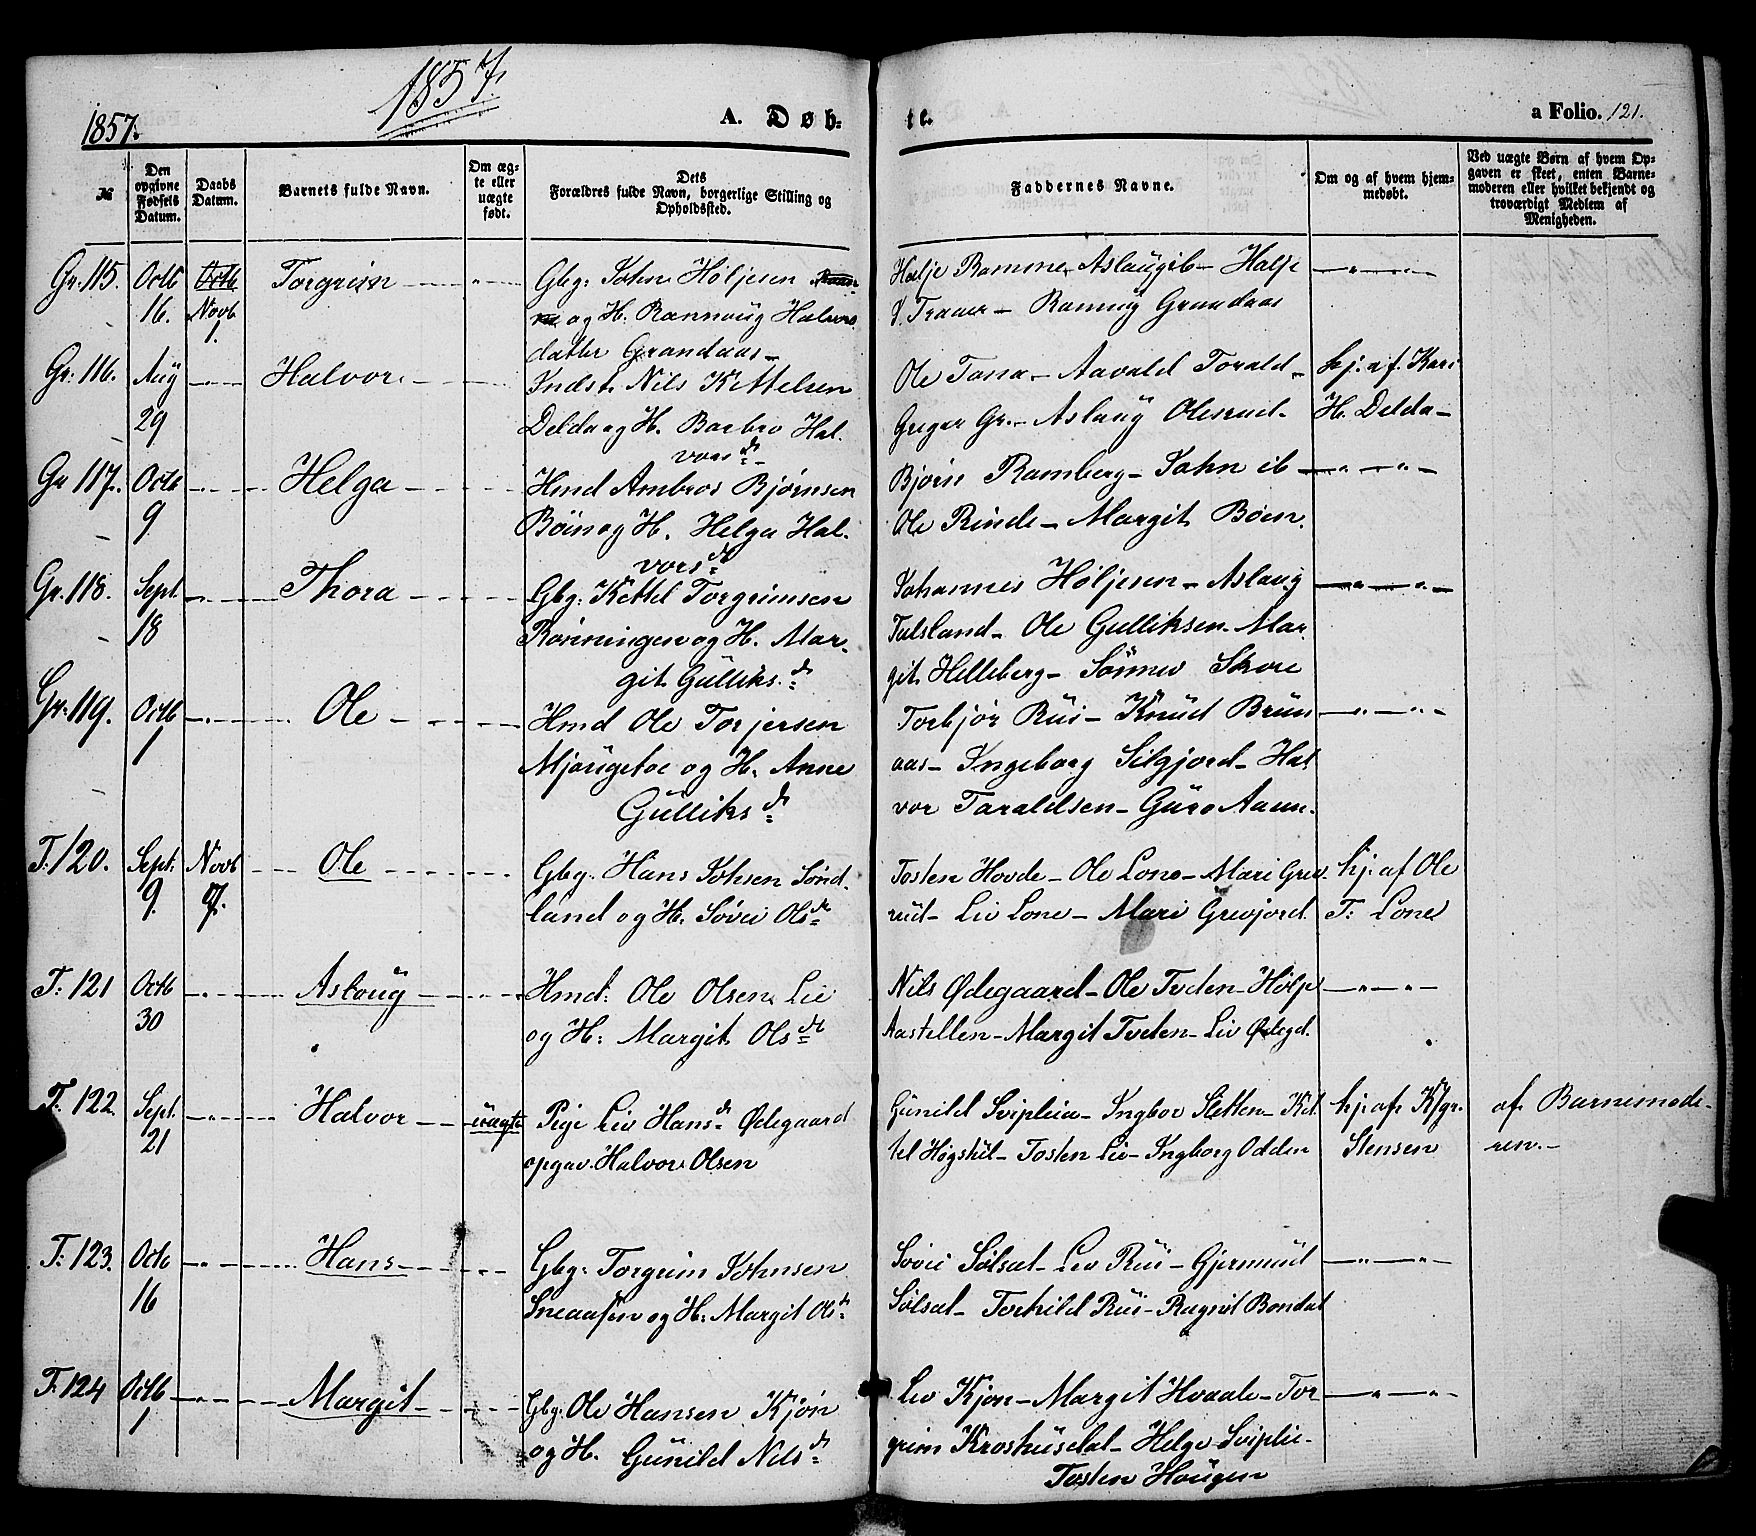 1857.
1857.
A. Døb-
te.
a Folio. 121.
№
Den opgivne Fødsels Datum.
Daabs Datum.
Barnets fulde Navn.
Om ægte eller uægte født.
Dets Forældres fulde Navn, borgerlige Stilling og Opholdssted.
Faddernes Navne.
Om og af hvem hjemmedøbt.
Ved uægte Børn af hvem Opgaven er skeet, enten Barnemoderen eller hvilket bekjendt og troværdigt Medlem af Menigheden.
Gr. 115. Octb 16. Octb Novb 1. Torgrim
Gbg: John Høljesen
og H: Rannoug Halvors
datter Grandaas
Halje Ramme Aslaug ib - Halje
Traaer - Rannug Grandaas
Gr. 116. Aug 29 Halvor
Indst. Nils Kittelsen
Delda og H. Barbro Hal.
vorsdr
Ole Tassa - Aavald Torald -
Gregar Gr. - Aslaug Olesrud -
hj. af. Kari
H. Delda -
Gr 117. Octb 9 Helga
Hmd Ambros Bjørnsen
Böin og H. Helga Hal.
vorsdr
Bjørn Ramberg - John ib
Ole Rinde - Margit Böen.
Gr. 118. Sept 18 Thora
Gbg: Kittel Torgrimsen
Rønningen og H. Mar-
git Gulliks.dr
Johannes Høljesen - Aslaug
Tulsland - Ole Gulliksen - Mar
git Helleberg - Sönnev Skore
Gr. 119. Octb 1 Ole
Hmd Ole Torjersen
Mjaugetoe og H. Anne
Gulliksdr
Torbjør Rui - Knud Brun
aas - Ingeborg Silgjord - Hal
vor Taraldsen - Guro Aaen.
T. 120. Sept. 9. Novb 7. Ole
Gbg. Hans Johsen Sønd.
land og H. Søvei Olsdr
Tosten Hovde - Ole Lone - Mari Grev
rud - Liv Lone - Mari Grevjord
hj. af Ole
T: Lone
T: 121 Octb 30 Aslaug
Hmd: Ole Olsen Lie
og H: Margit Olsdr
Nils Ødegaard - Ole Tveten - Hølje
Aastellen - Margit Tveten - Liv Ødegd.
T. 122 Sept. 21 Halvor uægte
Pige Liv Hansdr Ødegaard
opgav. Halvor Olsen
Gunild Svipliea - Ingbor Sletten - Kit
tel Høgstul - Tosten Lie - Ingborg Odden
hj. af Kgr.
Stensen
af Barnemode-
ren. -
T. 123. Octb 16 Hans
Gbg: Torgrim Johnsen
Sneaasen og H: Margit Olsdr
Sövei Sölsæt - Liv Rui - Gjermund
Sölsæt - Torkild Rui - Ragnil Bondal
T. 124 Octb 1 Margit
Gbg. Ole Hansen Kjøn
og H. Gunild Nilsdr
Liv Kjøn - Margit Hvaale - Tor
grim Kroshusdal - Helge Sviplie -
Tosten Haugen